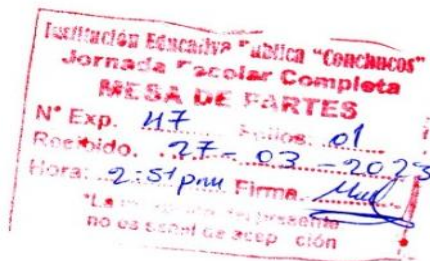 Institución Educativa Publica "Conchucos"
Jornada Escolar Completa
MESA DE PARTES
N° Exp. 47 Folios: 01
Recibido. 27 - 03 - 2023
Hora: 2:51 pm Firma.
"La del presente
no es señal de acep ción